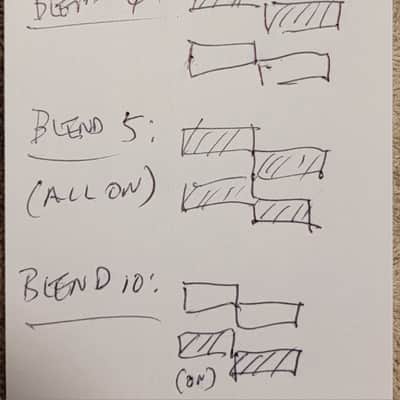 BLEND 4:
BLEND 5:
(ALL ON)
BLEND 10:
(ON)